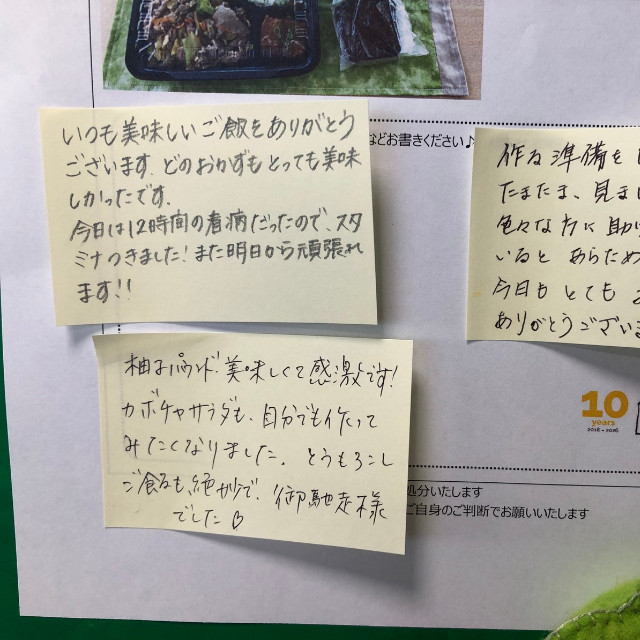 いつも美味しいご飯をありがとう
ございます。どのおかずもとっても美味
しかったです。
今日は12時間の看病だったので、スタ
ミナつきました!また明日から頑張れ
ます!!
などお書きください♪
作る準備を
たまたま、見ま
色々な方に助け
いると あらため
今日も とても
ありがとうござい
柚子パウンド美味しくて感激です!
カボチャサラダも、自分でも作って
みたくなりました。とうもろこし
ご飯も絶妙で、御馳走様
でした♡
10
years
2016 - 2026
処分いたします
ご自身のご判断でお願いいたします